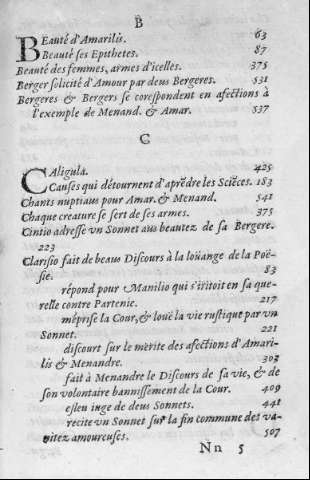 B
BEauté d'Amarilis. 63
Beauté ses Epithetes. 87
Beauté des femmes, armes d'icelles. 375
Berger solicité d'Amour par deus Bergeres. 531
Bergeres & Bergers se corespondent en afections à
l'exemple de Menand. & Amar. 537
C
CAligula. 425
Causes qui détournent d'aprēdre les Sciēces. 183
Chants nuptiaus pour Amar. & Menand. 541
Chaque creature se sert de ses armes. 375
Cintio adresse vn Sonnet aus beautez de sa Bergere.
223
Clarisio fait de beaus Discours à la loüange de la Poë-
sie. 83
répond pour Manilio qui s'iritoit en sa que-
relle contre Partenie. 217
méprise la Cour, & louë la vie rustique par vn
Sonnet. 221
discourt sur le merite des afections d'Amari-
lis & Menandre. 303
fait à Menandre le Discours de sa vie, & de
son volontaire bannissement de la Cour. 409
esleu iuge de deus Sonnets. 441
recite vn Sonnet sur la fin commune des va-
nitez amoureuses. 507
Nn 5